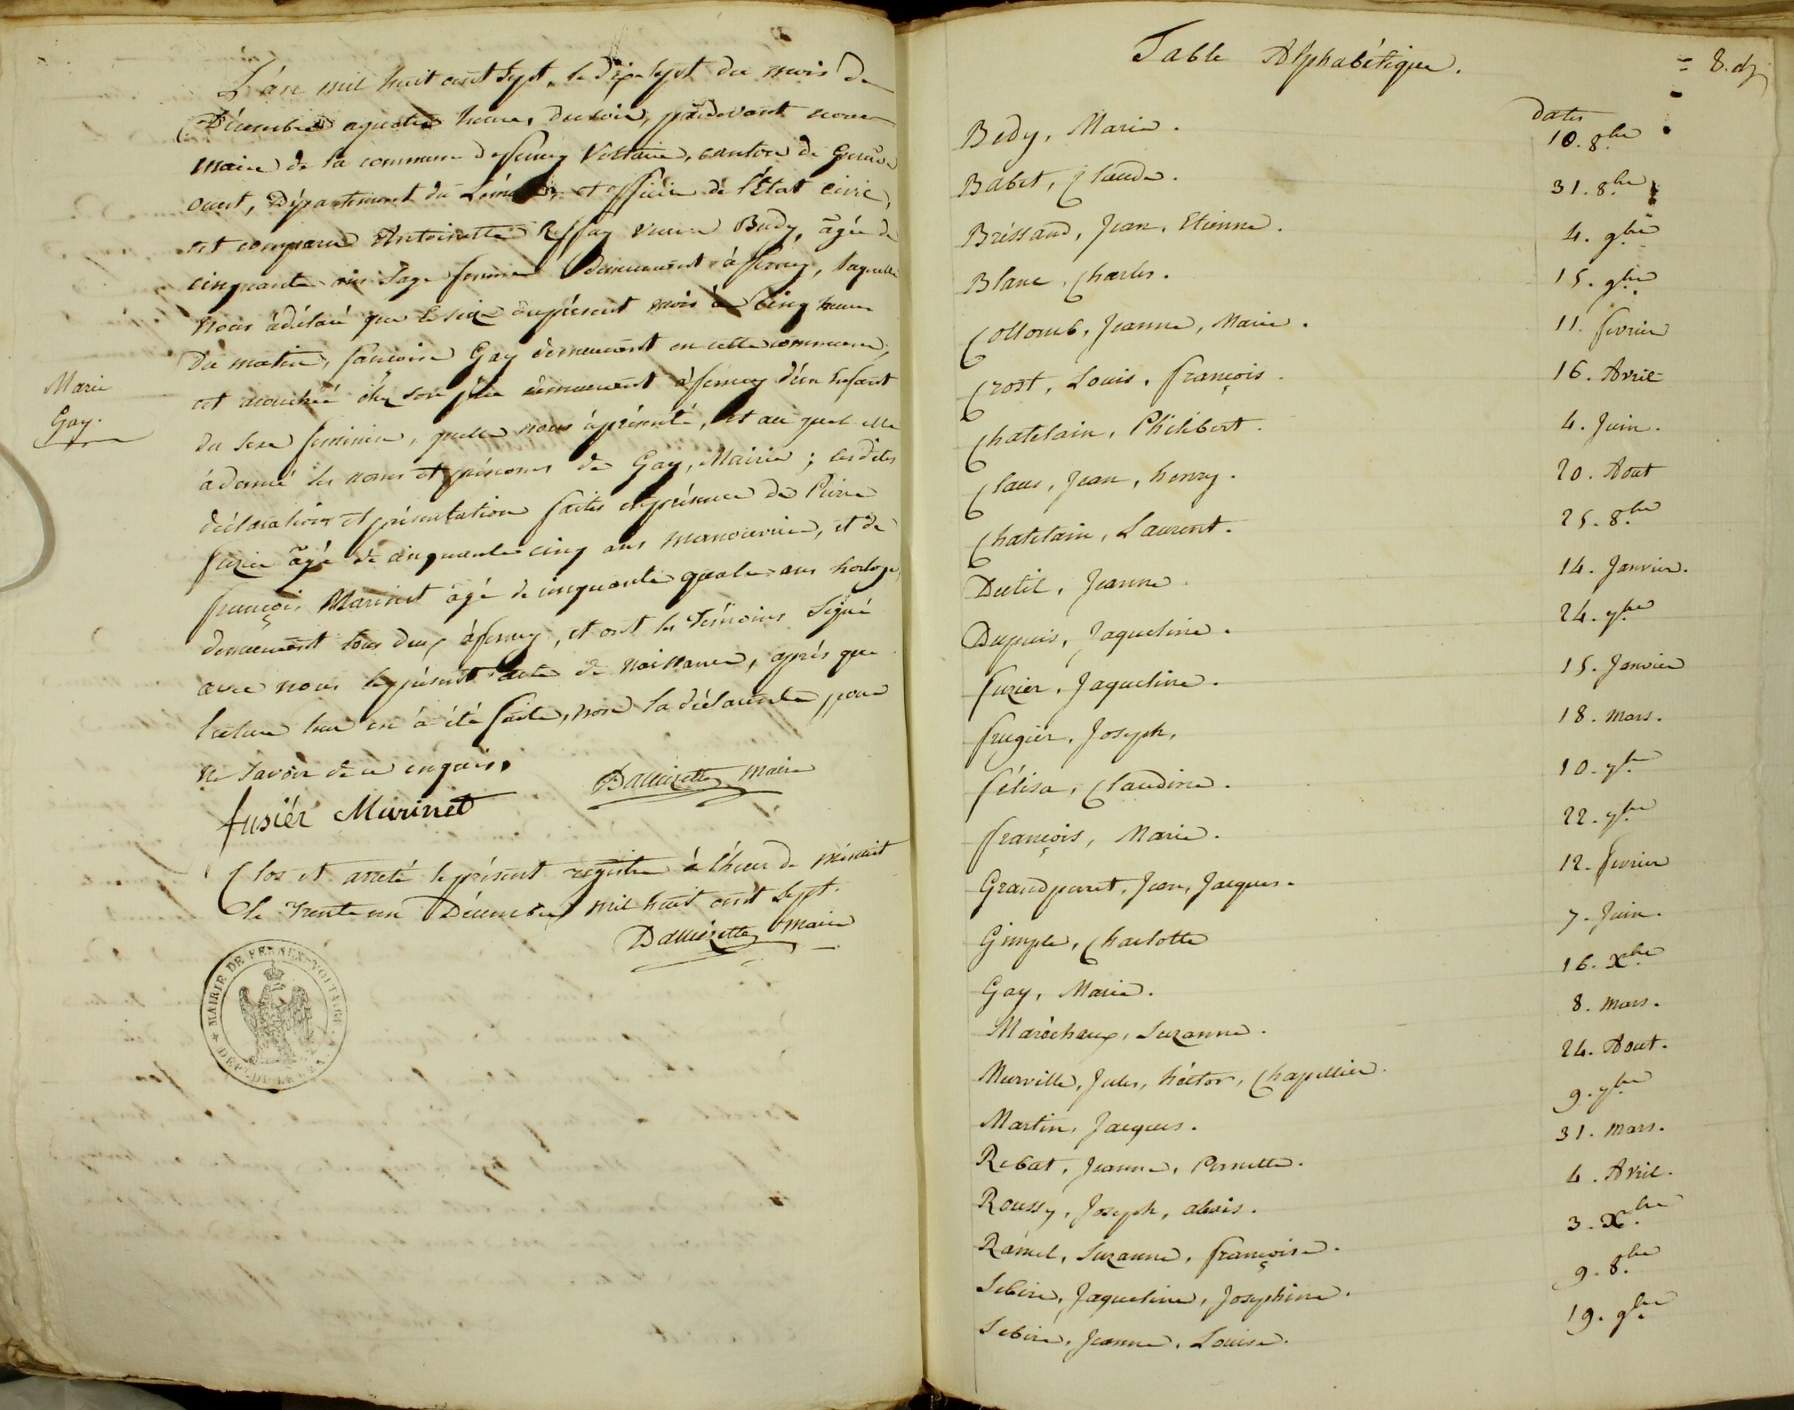 L'an mil huit cent Sept, le dix Sept du mois de
Décembre aquatre heures du soir, pardevant nous
maire de la commune de ferney Voltaire, canton de
ouest, Département du Léman, et officier de l'État civil,
est comparue Antoinette Reffay veuve Budy, âgée de
cinquante ans Sage femme demeurant à ferney, laquelle
nous à déclaré que le seize du présent mois à Cinq heures
du matin, françoise Gay demeurant en cette commune,
est accouchée chez son père demeurant à ferney d'un Enfant
du sexe feminin, quelle nous à présenté, et au quel elle
à donné les noms et prénoms de Gay, Marie ; lesdites
déclaration et présentation faites en présence de Pierre
fuzier âgé de cinquante cinq ans manouvrier, et de
françois Marinet âgé de cinquante quatre ans horloger,
demeurant tous deux à ferney, et ont les Témoins Signé
avec nous le présent acte de naissance, après que
lecture leur en à été faite, non la déclarante pour
ne savoir de ce enquise.
Marie
Gay.
Dallizette maire
fusiér Murinet
Clos et arreté le présent registre à l'heure de minuit
le trente un Décembre mil huit cent Sept.
Dallizette maire
MAIRIE DE FERNEX-VOLTAIRE
DEPT. DU LEMAN
Table Alphabétique.
dates
Bedy, Marie. 10. 8bre
Babet, Claude. 31. 8bre
Bréssand, Jean, Etienne. 4. 9bre
Blanc, Charles. 15. 9bre
Collomb, Jeanne, Marie. 11. fevrier
Crost, Louis, François. 16. Avril
Chatelain, Philibert. 4. Juin.
Claus, Jean, henry. 20. Aout
Chatelain, Laurent. 25. 8bre
Dutil, Jeanne. 14. Janvier.
Dupuis, Jaqueline. 24. 7bre
fuzier, Jaqueline. 15. Janvier
frugier, Joseph. 18. mars.
félisa, Claudine. 10. 7bre
françois, Marie. 22. 7bre
Grandperret, Jean, Jacques. 12. fevrier
Gimple, Charlotte 7. Juin.
Gay, Marie. 16. Xbre
Maréchaux, Suzanne. 8. mars.
Merville, Jules, héctor, Chapellier. 24. Aout.
Martin, Jacques. 9. 7bre
Rebat, Jeanne, Pernette. 31. mars.
Roussy, Joseph, alois. 4. Avril.
Ramel, Suzanne, françoise. 3. Xbre
Sebire, Jaqueline, Josephine. 9. 8bre
Sebire, Jeanne, Louise. 19. 9bre